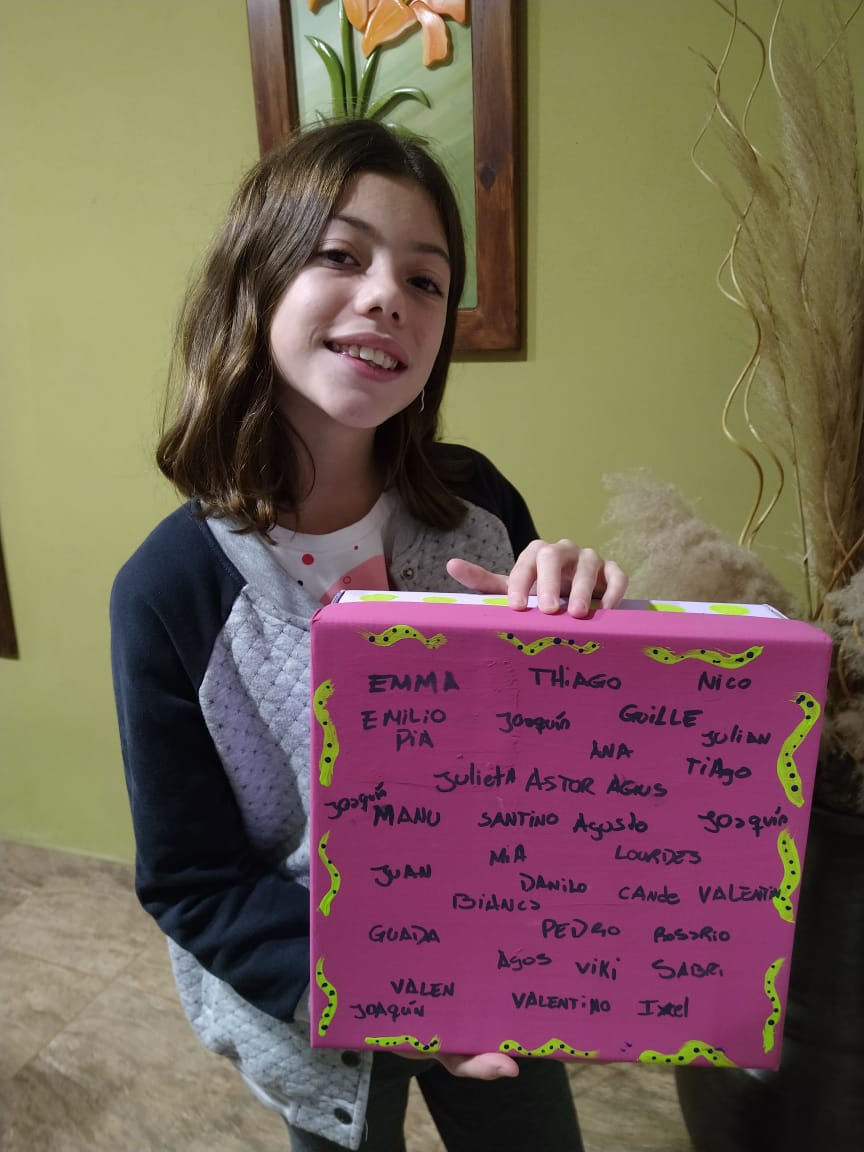 EMMA THiAGO Nico
EMILIO Joaquín GUiLLE
PiA ANA JULiAN
JulietA ASTOR AGNUS TiAgo
Joaquín MANU SANTINO Agosto Joaquín
JUAN MiA LOURDES
BiANCa DANiLO CANDe VALENTiN
GUADA PEDRO Rosario
Agos ViKi SABRi
VALEN VALENTiNO Ixcel
JOAQUíN